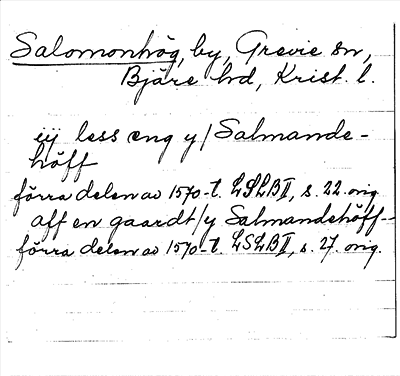 Salomonhög, by, Grevie sn,
Bjäre hd, Krist. l.
iij less eng y / Salmande-
höff
förra delen av 1570-t. LSLB II, s. 22. orig
aff en gaardt / y Salmandehöff -
förra delen av 1570-t. LSLB II, s. 27. orig.